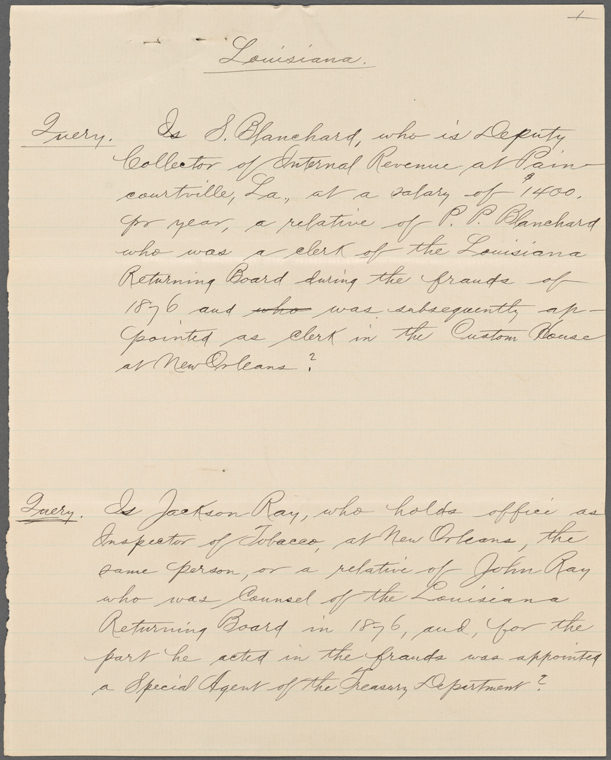 Louisiana.
Query. Is S. Blanchard, who is Deputy
Collector of Internal Revenue at Pain-
courtville, La., at a salary of $1400.
per year, a relative of P. P. Blanchard
who was a clerk of the Louisiana
Returning Board during the frauds of
1876 and who was subsequently ap-
pointed as clerk in the Custom House
at New Orleans?
Query. Is Jackson Ray, who holds office as
Inspector of Tobacco, at New Orleans, the
same person, or a relative of John Ray
who was Counsel of the Louisiana
Returning Board in 1876, and, for the
part he acted in the frauds was appointed
a Special Agent of the Treasury Department?